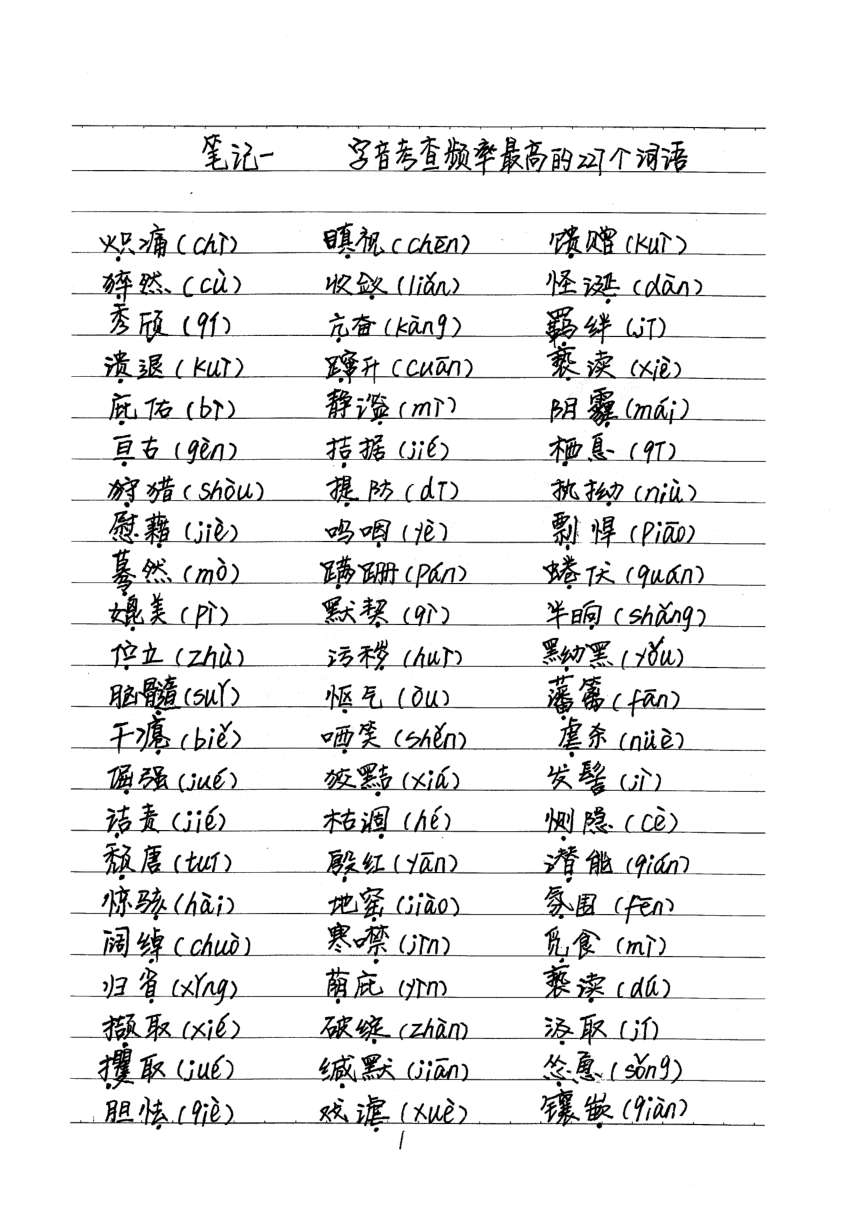 笔记一 字音考查频率最高的227个词语
炽痛(chì) 瞋视(chēn) 馈赠(kuì)
猝然(cù) 收敛(liǎn) 怪诞(dàn)
秀颀(qí) 亢奋(kàng) 羁绊(jī)
溃退(kuì) 蹿升(cuān) 亵渎(xiè)
庇佑(bì) 静谧(mì) 阴霾(mái)
亘古(gèn) 拮据(jié) 栖息(qī)
狩猎(shòu) 提防(dī) 执拗(niù)
慰藉(jiè) 呜咽(yè) 剽悍(piāo)
蓦然(mò) 蹒跚(pán) 蜷伏(quán)
媲美(pì) 默契(qì) 半晌(shǎng)
伫立(zhù) 污秽(huì) 黑黝黑(yǒu)
脑髓(suǐ) 怄气(òu) 藩篱(fān)
干瘪(biě) 哂笑(shěn) 虐杀(nüè)
倔强(jué) 狡黠(xiá) 发髻(jì)
诘责(jié) 枯涸(hé) 恻隐(cè)
颓唐(tuí) 殷红(yān) 潜能(qián)
惊骇(hài) 地窖(jiào) 氛围(fēn)
阔绰(chuò) 寒噤(jìn) 觅食(mì)
归省(xǐng) 荫庇(yìn) 亵渎(dú)
撷取(xié) 破绽(zhàn) 汲取(jí)
攫取(jué) 缄默(jiān) 怂恿(sǒng)
胆怯(qiè) 戏谑(xuè) 镶嵌(qiàn)
1